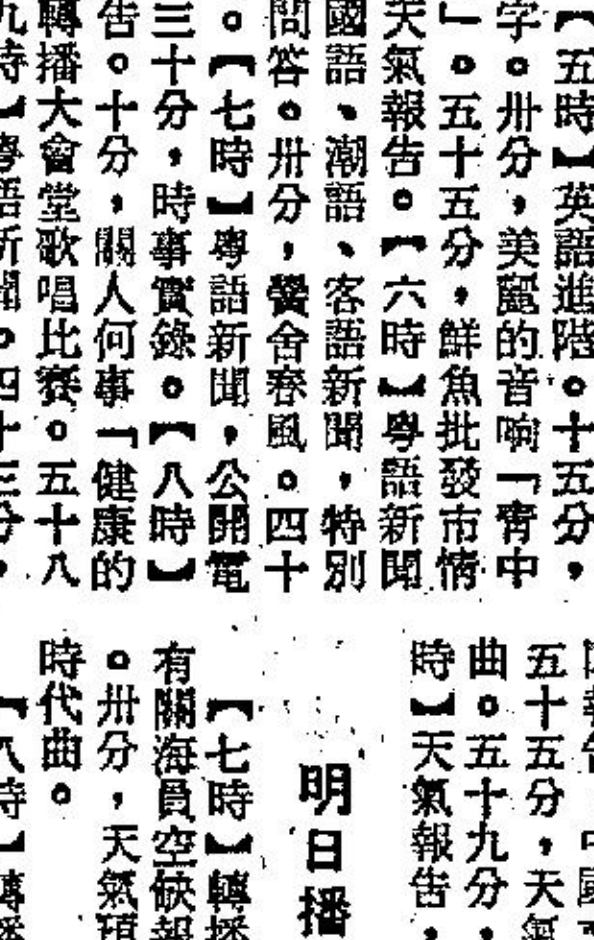 【五時】英語進階。十五分,
字。卅分,美麗的音响「霄中
」。五十五分,鮮魚批發市情
天氣報告。【六時】粵語新聞
國語、潮語、客語新聞,特別
問答。卅分,黌舍春風。四十
。【七時】粵語新聞,公開電
三十分,時事實錄。【八時】
告。十分,關人何事「健康的
轉播大會堂歌唱比賽。五十八
九時】粵語新聞。四十三分,
五十五分,天氣
曲。五十九分,
時】天氣報告,
明日播
【七時】轉播
有關海員空缺報
。卅分,天氣預
時代曲。
【八時】轉播